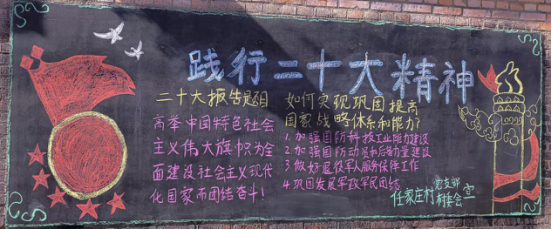 践行二十大精神
二十大报告题目
高举中国特色社会
主义伟大旗帜为全
面建设社会主义现代
化国家而团结奋斗!
如何实现巩固提高
国家战略体系和能力?
1.加强国防科技工业能力建设
2.加强国防动员和后备力量建设
3.做好退役军人服务保障工作
4.巩固发展军政军民团结
任家庄村党支部
村委会 宣